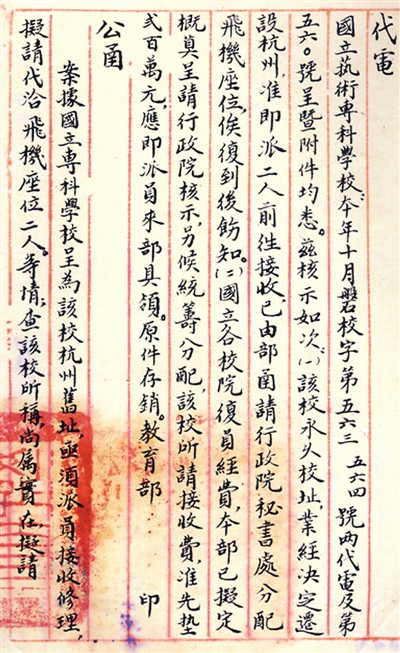 代電
國立執術專科學校本年十月磐校字第五六三 五六四 號兩代電及第
五六〇號呈暨附件均悉。茲核示如次：(一)該校永久校址，業經決定遷
設杭州，准即派二人前往接收，已由部函請行政院秘書處分配
飛機座位，俟復到後飭知。(二)國立各校院復員經費，本部已擬定
概算呈請行政院核示，另候統籌分配，該校所請接收費，准先墊
弍百萬元，應即派員來部具領。原件存銷。教育部 印
公函
案據國立專科學校呈為該校杭州舊址，亟須派員接收修理，
擬請代洽飛機座位二人等情；查該校所稱，尚屬實在，擬請